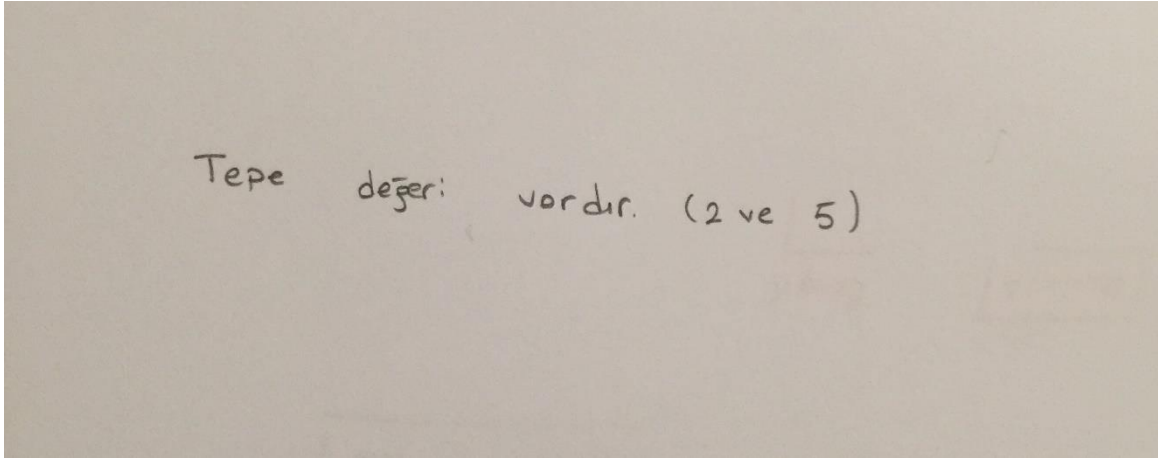 Tepe değeri vardır. (2 ve 5)